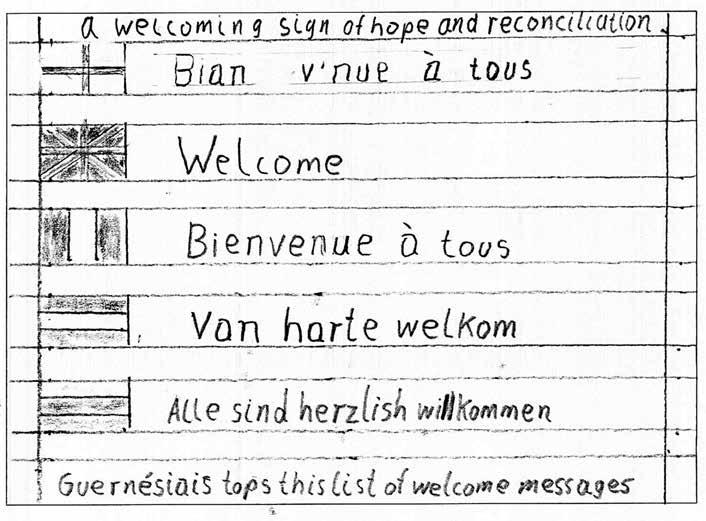 a welcoming sign of hope and reconciliation.
Bian v'nue à tous
Welcome
Bienvenue à tous
Van harte welkom
Alle sind herzlish willkommen
Guernésiais tops this list of welcome messages